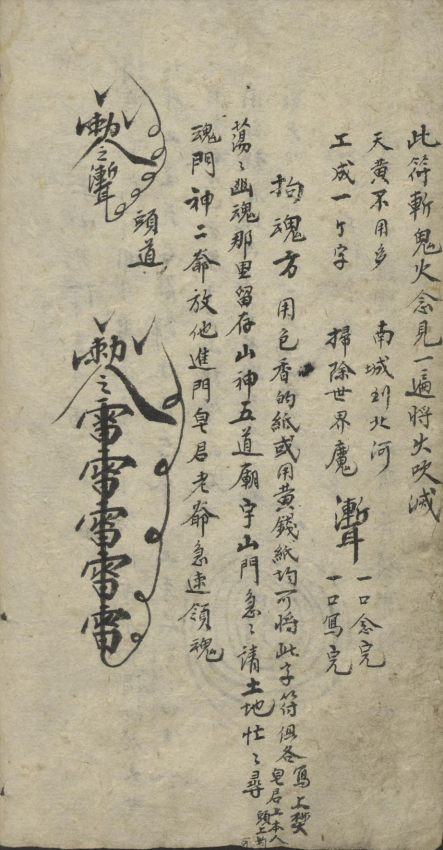 此符斬鬼火念見一遍將火吹滅
天黄不用多 南城到北河
工成一个字 掃除世界魔 魙
一口念完
一口寫完
拘魂方 用包香的紙或用黄錢紙均可將此字符但各寫上焚
皂君上本人
頭上
蕩〻幽魂那里留存山神五道廟宇山門急〻請土地忙〻尋
魂門神二爺放他進門皂君老爺急速領魂
頭道
勅令
雷雷雷雷雷